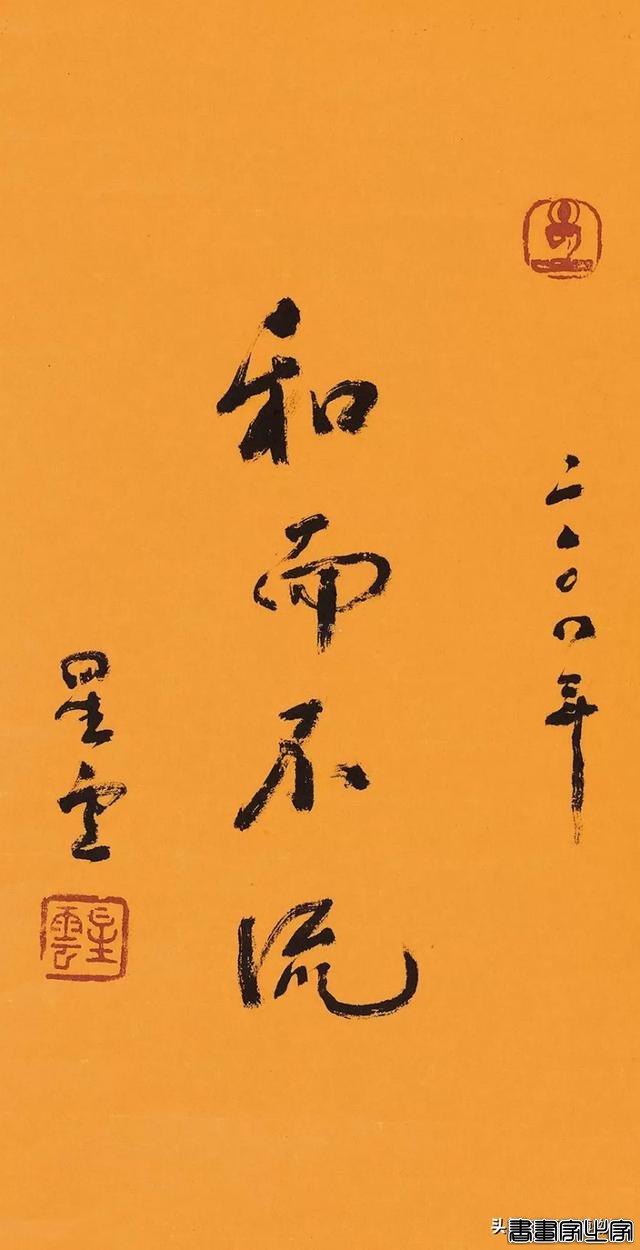 二〇〇四年
和而不流
星云
星雲
头
書畫家